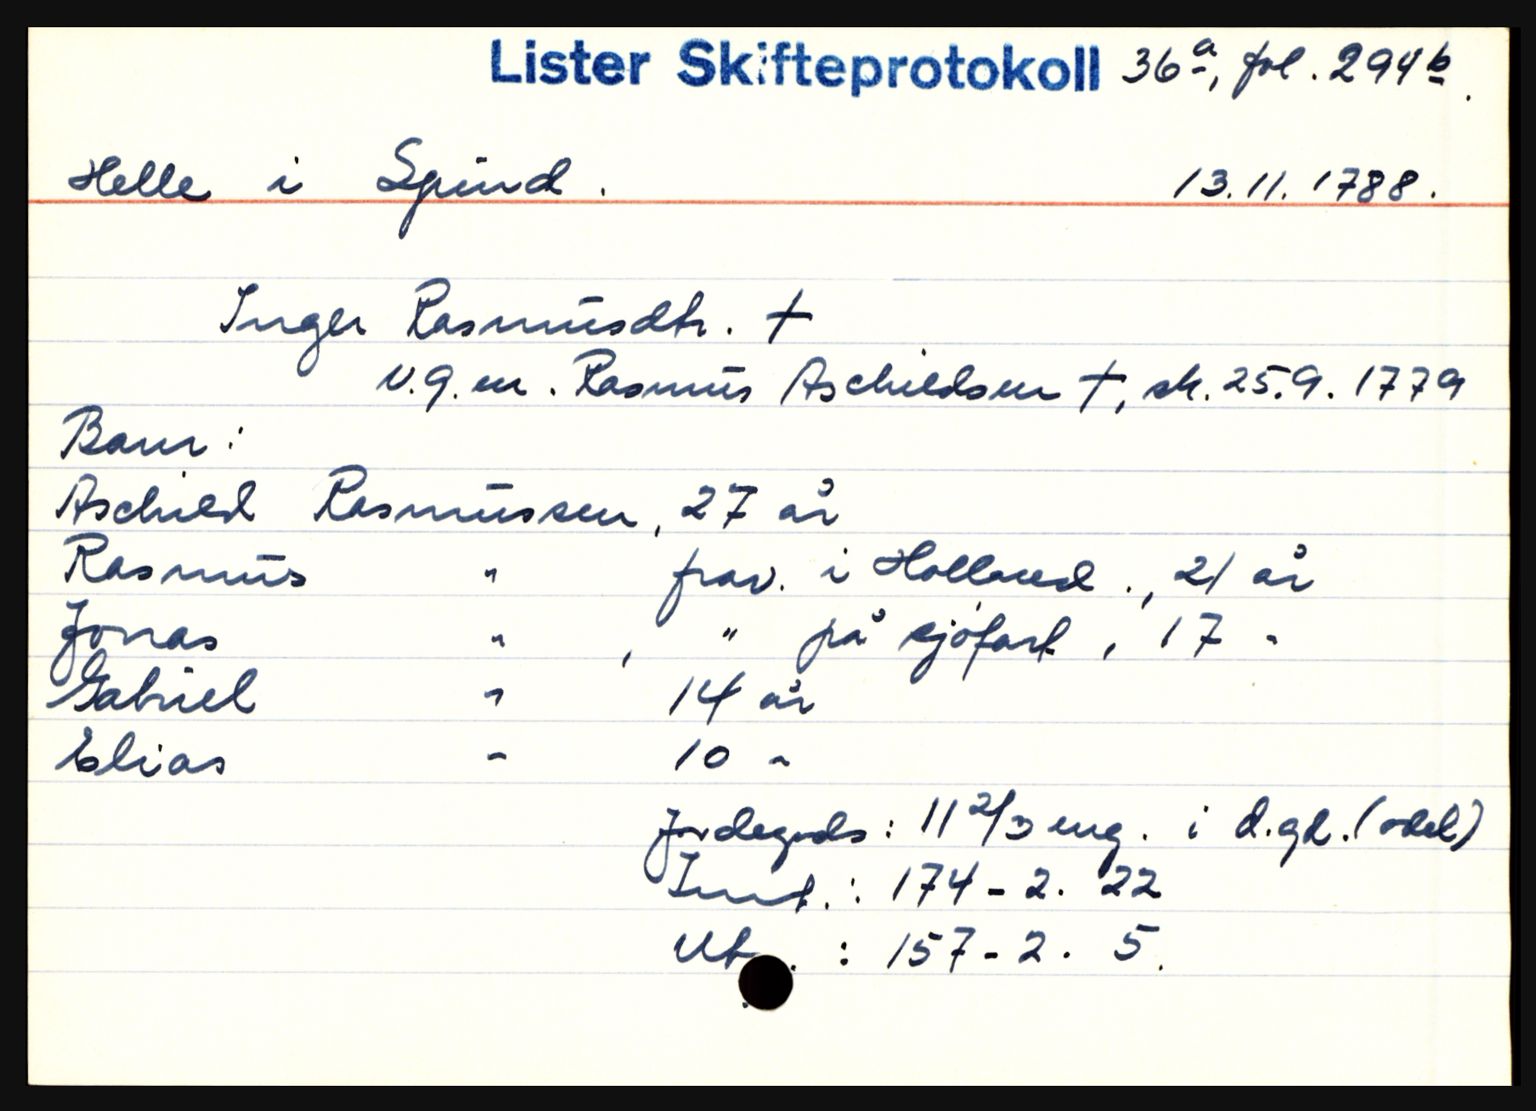 Lister Skifteprotokoll 36a, fol. 294b.
Helle i Spind. 13.11.1788.
Inger Rasmusdtr. †
v.g.m. Rasmus Aschildsen †, sk. 25.9.1779
Barn:
Aschild Rasmussen, 27 år
Rasmus " frav. i Holland., 21 år
Jonas ", " på sjøfart, 17 "
Gabriel " 14 år
Elias " 10 "
Jordegods: 11 2/3 eng. i d.gd. (odel)
Innt.: 174-2. 22
Ut.: 157-2. 5.